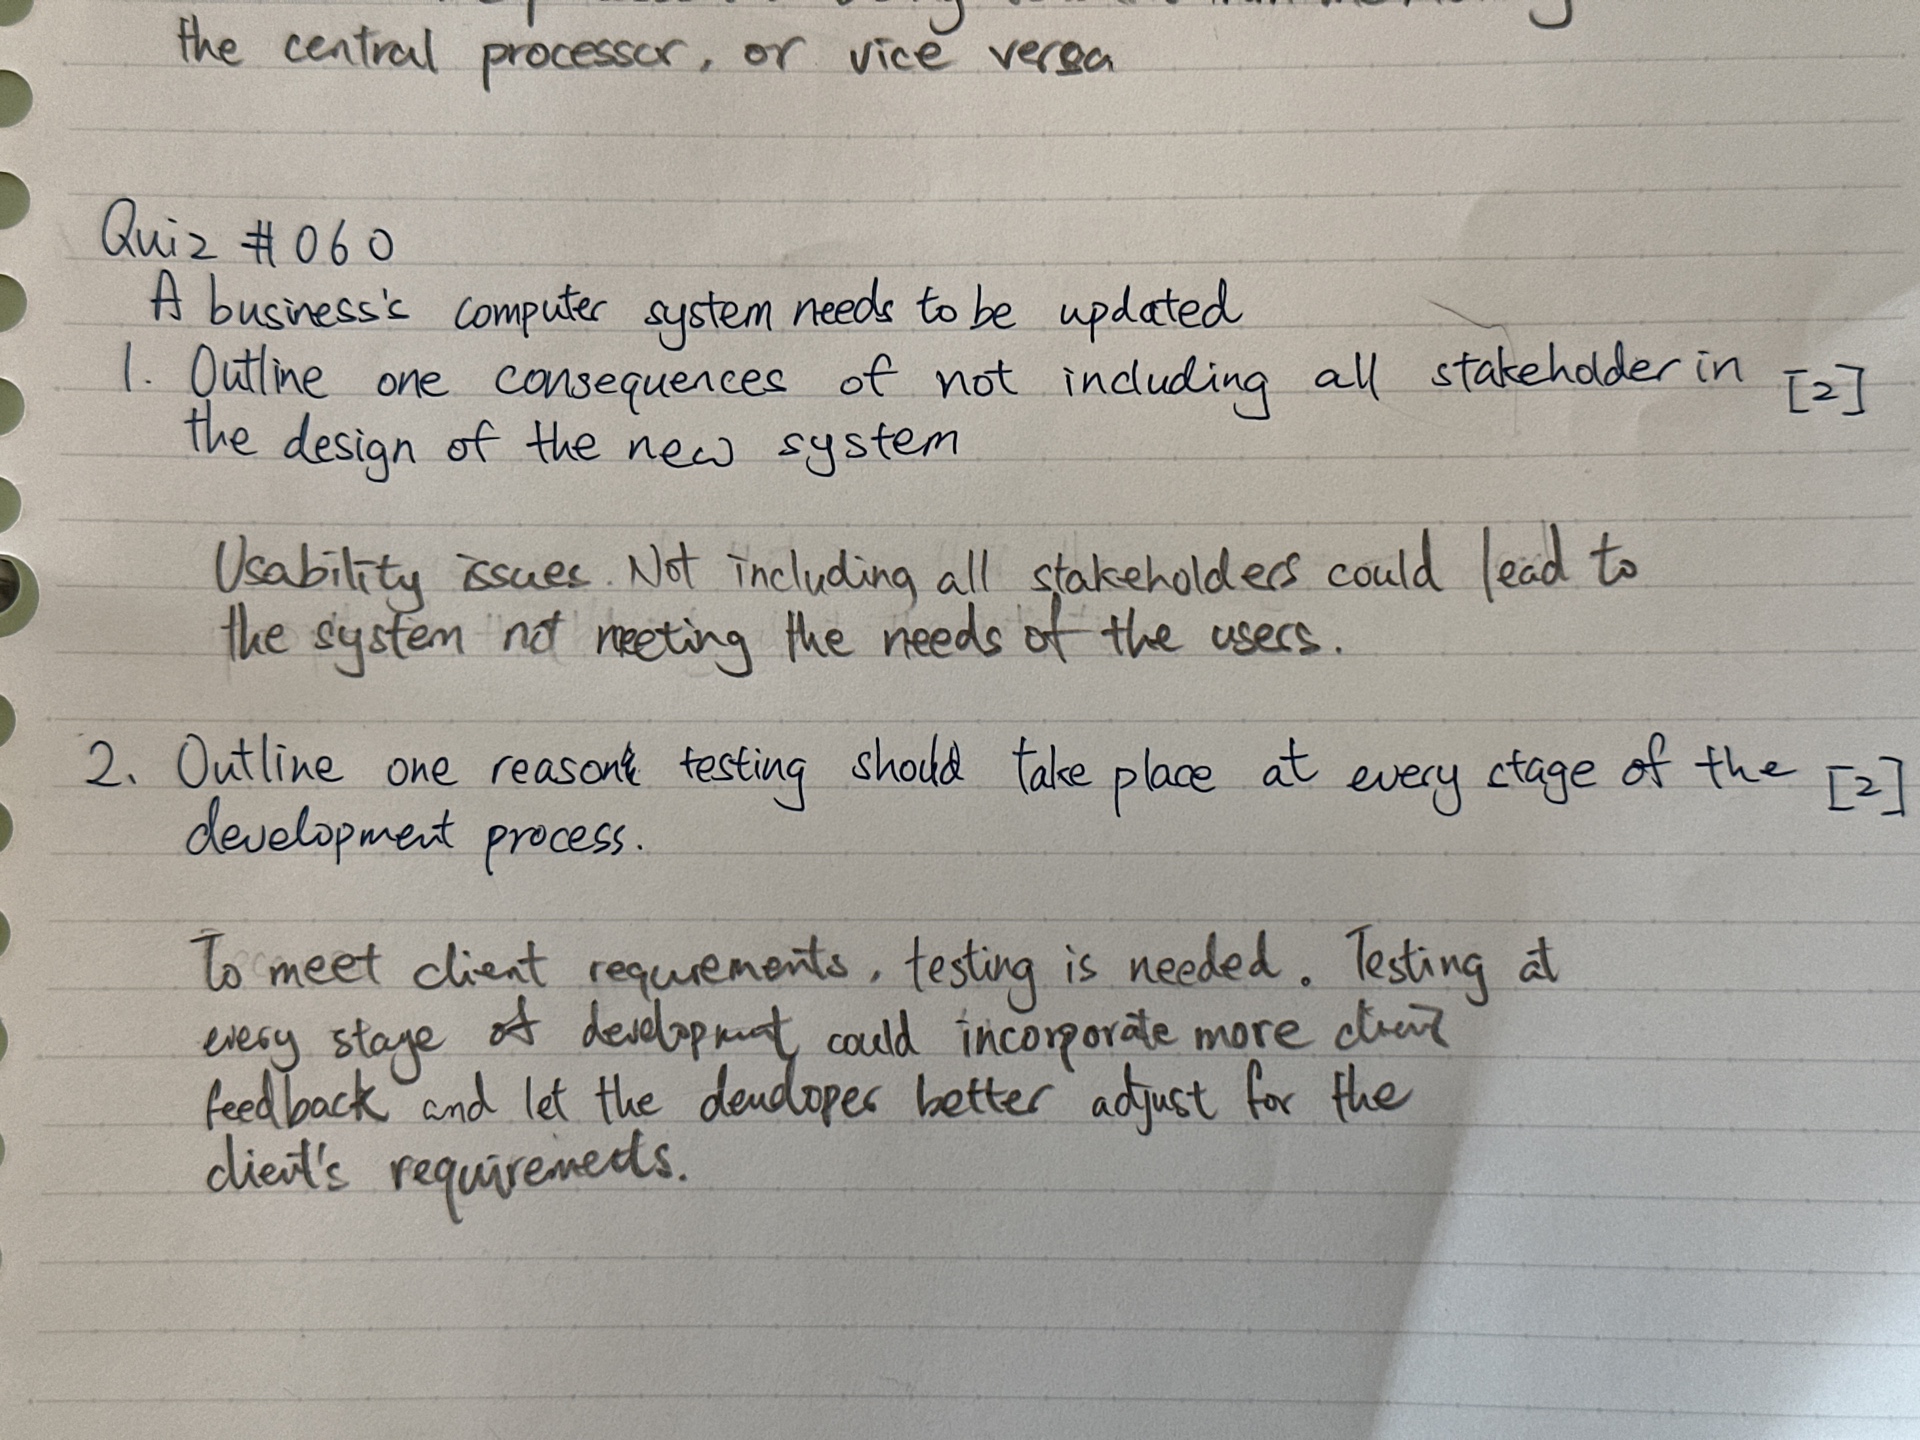 the central processor, or vice versa
Quiz #060
A business's computer system needs to be updated
1. Outline one consequences of not including all stakeholder in [2]
the design of the new system
Usability issues. Not including all stakeholders could lead to
the system not meeting the needs of the users.
2. Outline one reason testing should take place at every stage of the [2]
development process.
To meet client requirements, testing is needed. Testing at
every stage of development could incorporate more client
feedback and let the developer better adjust for the
client's requirements.